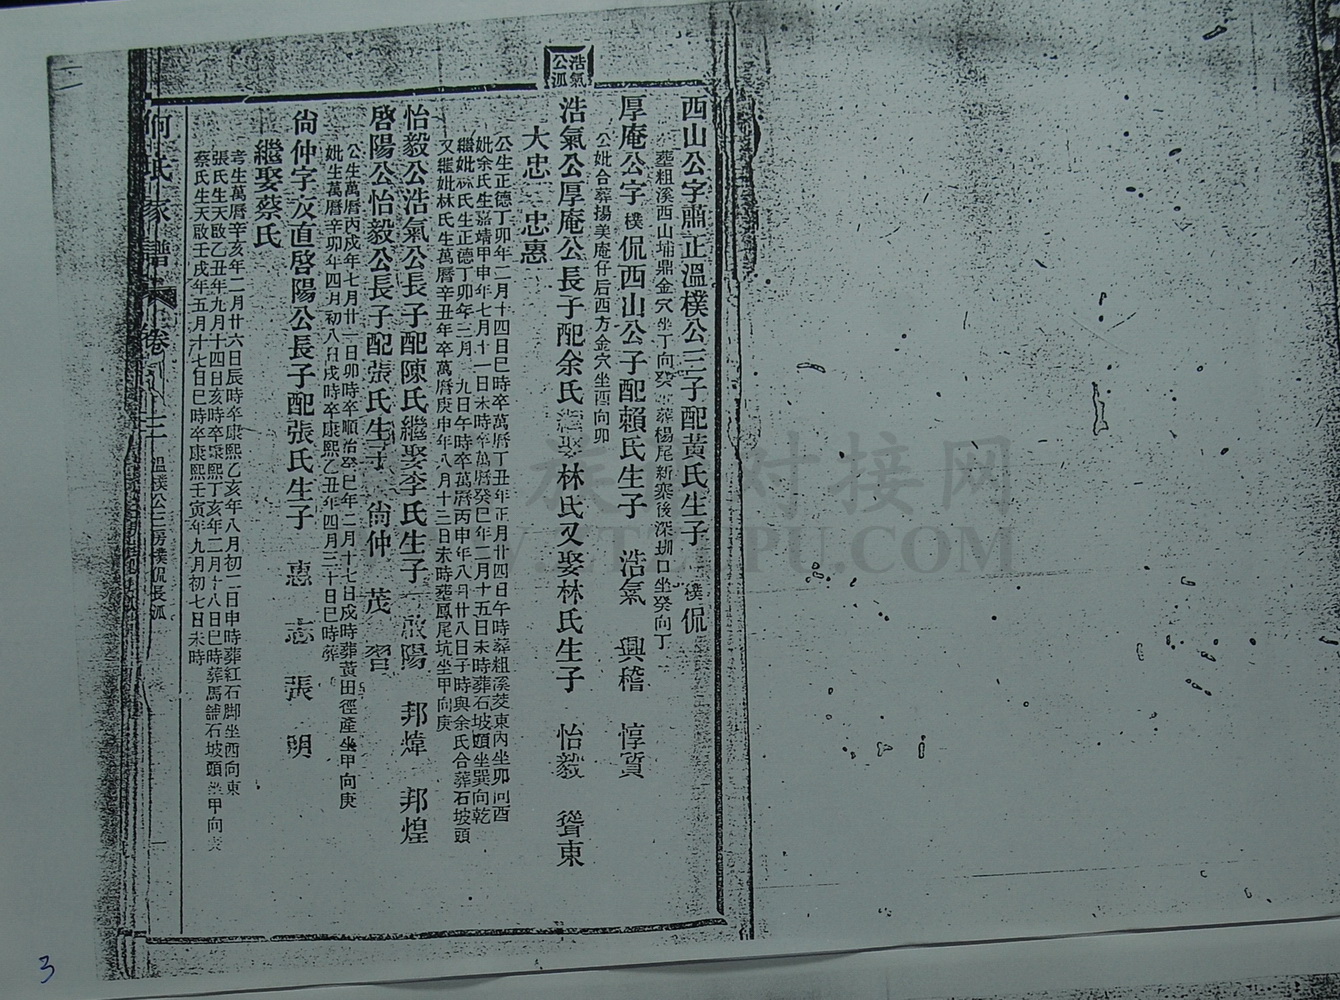 浩氣公派
西山公字肅正溫樸公三子配黃氏生子 樸侃
塟粗溪西山埔鼎金穴坐丁向癸 葬楊尾新寨後深圳口坐癸向丁
厚庵公字樸侃西山公子配賴氏生子 浩氣 興稽 惇質
公妣合葬揚美庵仔后西方金穴坐酉向卯
浩氣公厚庵公長子配余氏繼娶林氏又娶林氏生子 怡毅 聳東
大忠 忠惠
公生正德丁卯年二月十四日巳時卒萬曆丁丑年正月廿四日午時葬粗溪茭東內坐卯向酉
妣余氏生嘉靖甲申年七月十一日未時卒萬曆癸巳年二月十五日未時葬石坡頭坐巽向乾
繼妣林氏生正德丁卯年三月 九日午時卒萬曆丙申年八月廿八日子時與余氏合葬石坡頭
又繼妣林氏生萬曆辛丑年卒萬曆庚申年八月十三日未時塟鳳尾坑坐甲向庚
怡毅公浩氣公長子配陳氏繼娶李氏生子 啟陽 邦煒 邦煌
啓陽公怡毅公長子配張氏生子 尙仲 茂 習
公生萬曆丙戍年七月廿 日卯時卒順治癸巳年二月十七日戍時葬黃田徑產坐甲向庚
妣生萬曆辛卯年四月初八日戍時卒康熙乙丑年四月三十日巳時葬
尙仲字友直啓陽公長子配張氏生子 惠 志 張 明
繼娶蔡氏
考生萬曆辛亥年二月廿六日辰時卒康熙乙亥年八月初二日申時葬紅石脚坐西向東
張氏生天啟乙丑年九月十四日亥時卒康熙丁亥年二月十八日巳時葬馬舖石坡頭 甲向
蔡氏生天啟壬戍年五月十七日巳時卒康熙壬寅年九月初七日未時
何氏家譜 卷八 三 溫樸公三房樸侃長派
族 对接网
PU.COM
3